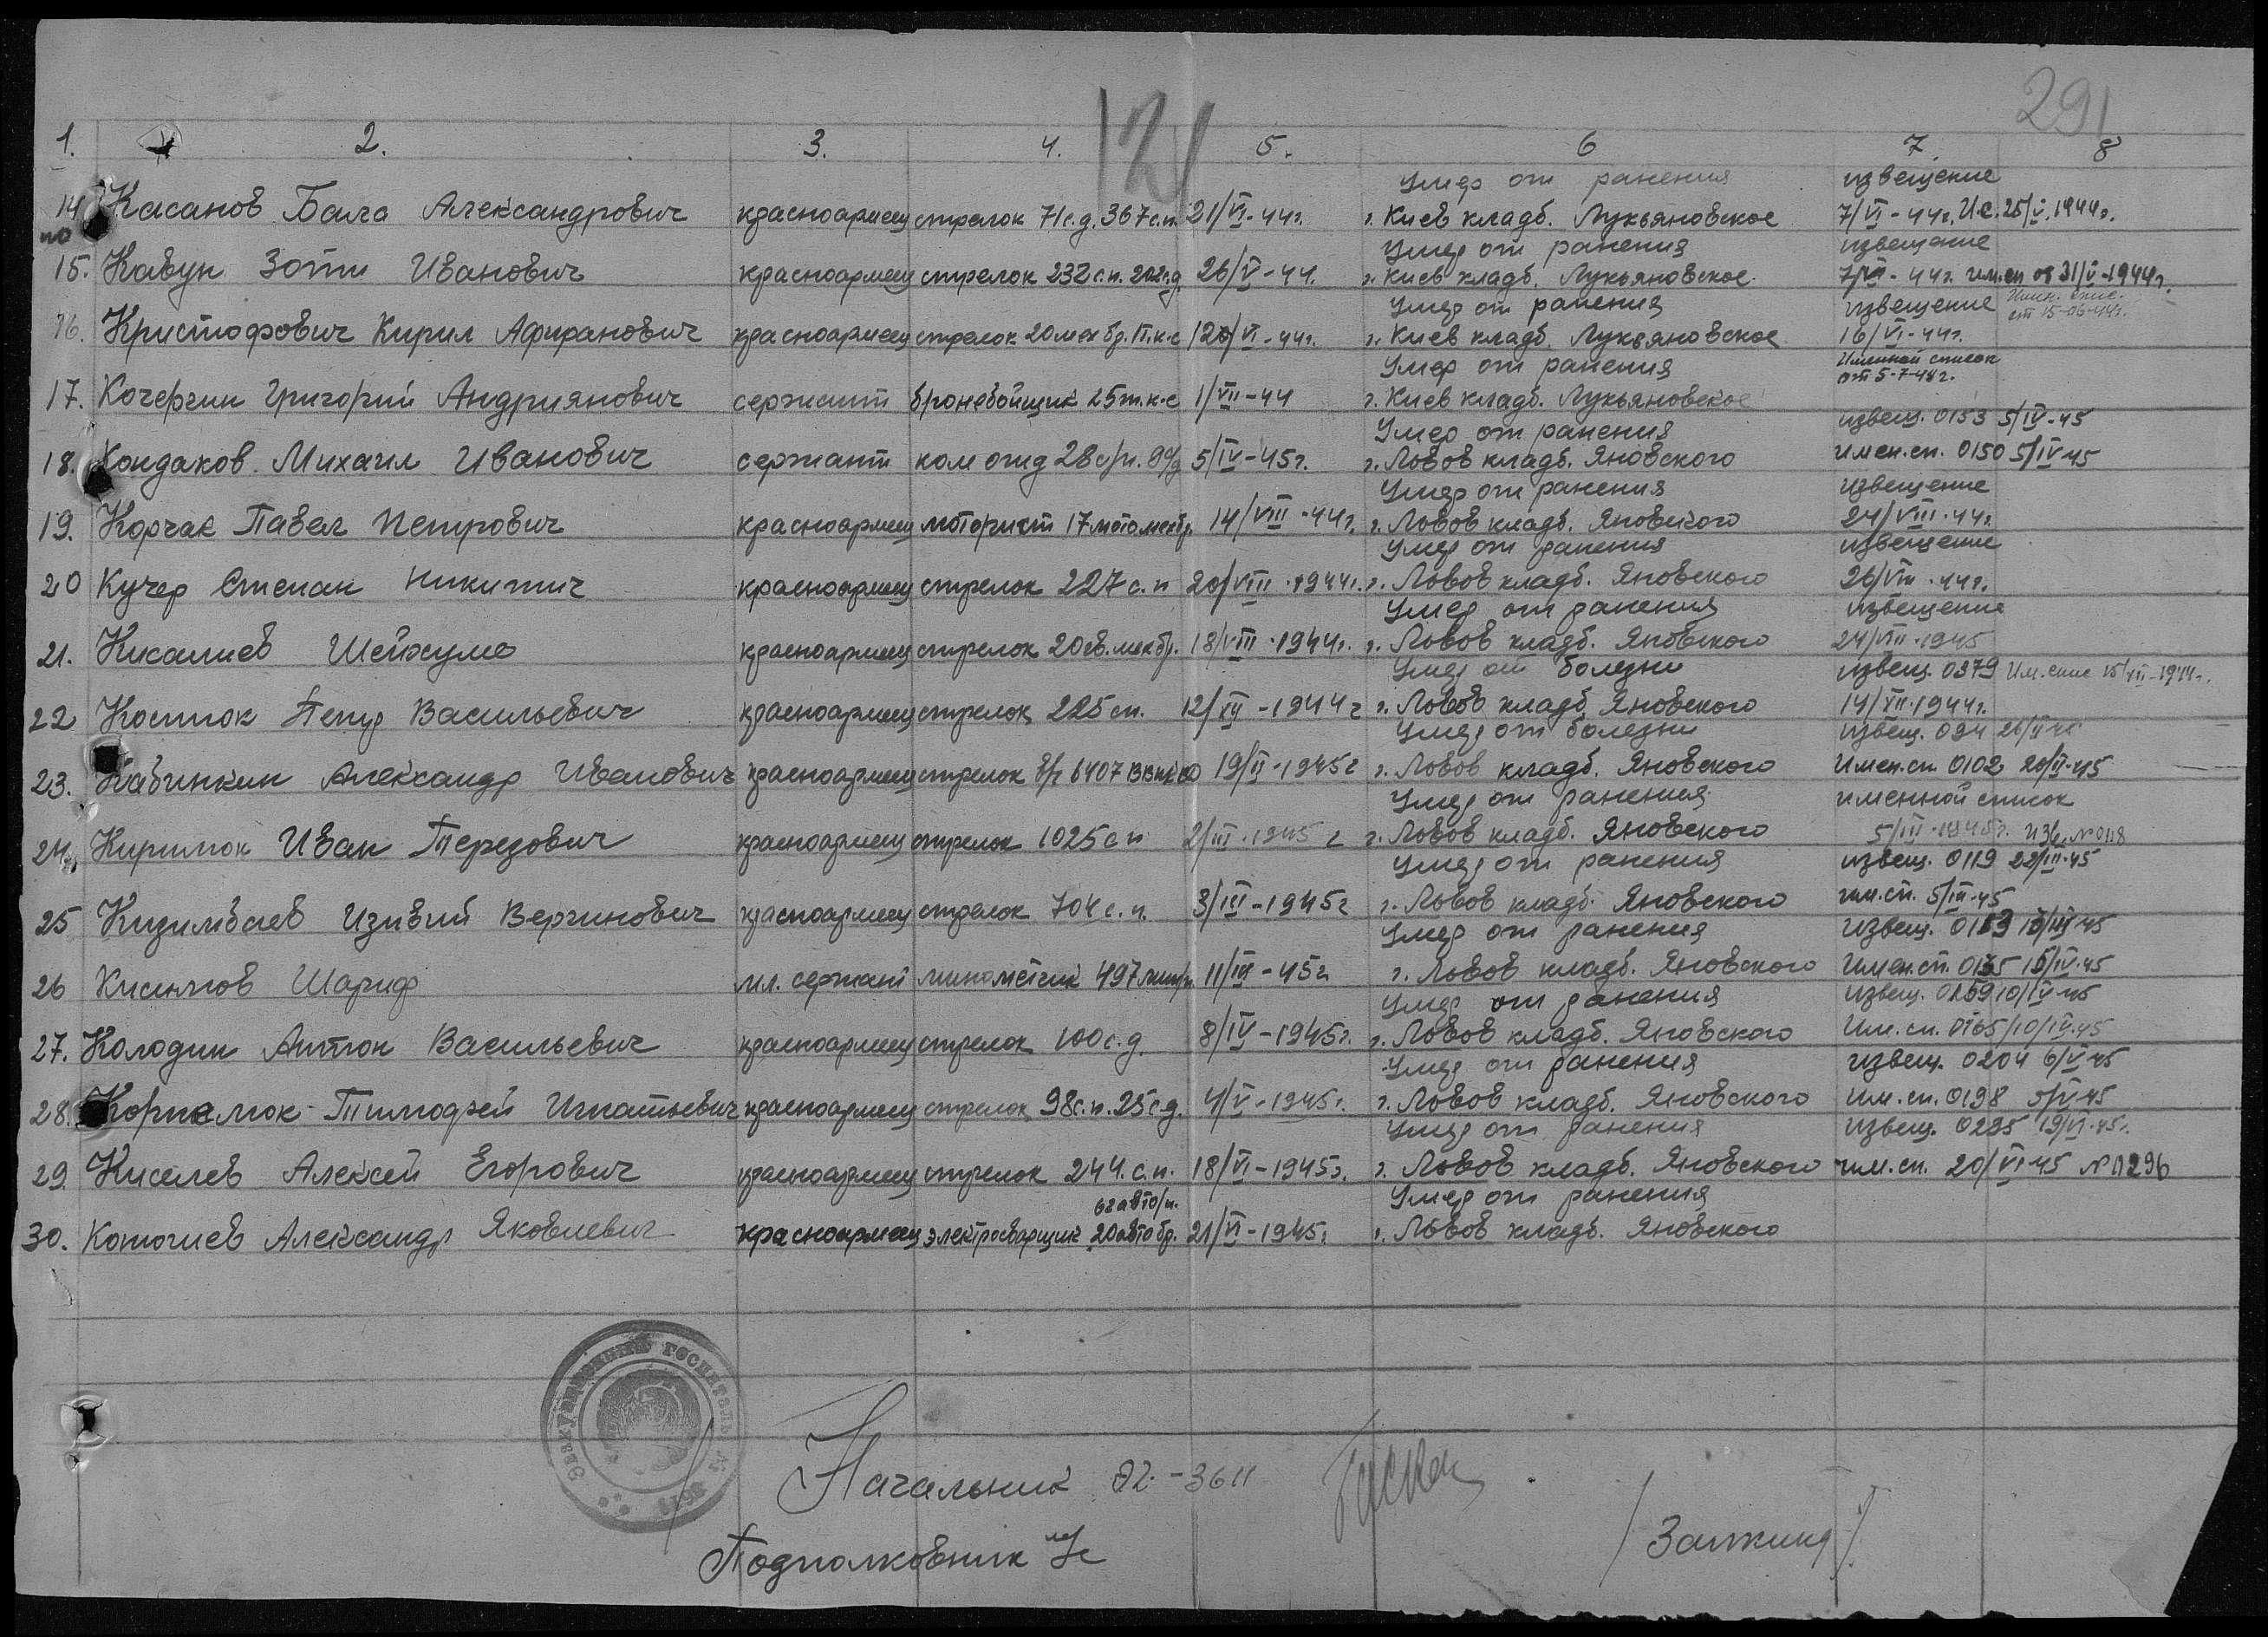 291
121
1. 2. 3. 4. 5. 6 7. 8
Умер от ранения извещение
14 Касанов Бала Александрович красноармеец стрелок 71 с.д. 367 с.п. 21/VI-44г. г. Киев кладб. Лукьяновское 7/VI-44г. И.с. 25/V.1944г.
Умер от ранения извещение
15. Кавун Зотти Иванович красноармеец стрелок 232 с.п. 202с.д. 26/V-44. г. Киев кладб. Лукьяновское. 7/VI-44г. им.сп от 31/V-1944г.
Умер от ранения извещение Имен. спис. от 15-06-44г.
16. Кристофович Кирил Афиранович красноармеец стрелок 20 мех бр. г. Киев кладб. Лукьяновское 16/VI-44г.
Умер от ранения Именной список от 5-7-44г.
17. Кочергин Григорий Андриянович сержант бронебойщик 25 т.к-с 1/VII-44 г. Киев кладб. Лукьяновское
Умер от ранения извещ. 0153 5/IV-45
18. Кондаков Михаил Иванович сержант ком отд 28 с/п. 5/IV-45г. г. Львов кладб. Яновского имен.сп. 0150 5/IV 45
Умер от ранения извещение
19. Корчак Павел Петрович красноармеец моторист 17 мотомехбр. 14/VIII-44г. г. Львов кладб. Яновского 24/VIII-44г.
Умер от ранения извещение
20 Кучер Степан Никитич красноармеец стрелок 227 с.п 20/VIII-1944г. г. Львов кладб. Яновского 26/VIII-44г.
Умер от ранения извещение
21. Кисалиев Шейхуме красноармеец стрелок 20 гв. мехбр. 18/VIII-1944г. г. Львов кладб. Яновского 24/VIII-1945
Умер от болезни извещ. 0379 Им.спис 15/XII-1944г.
22 Костюк Петр Васильевич красноармеец стрелок 225 сп. 12/XII-1944 г г. Львов кладб. Яновского 14/XII-1944г.
Умер от болезни извещ. 094 26/II 45
23. Кабинкин Александр Иванович красноармеец стрелок в/ч 6407 19/II-1945 г г. Львов кладб. Яновского Имен.сп. 0102 20/II-45
Умер от ранения именной список
24. Кирилюк Иван Терезович красноармеец стрелок 1025 с п 2/III-1945 г г. Львов кладб. Яновского 5/III-1945г. Изв. №0118
Умер от ранения извещ. 0119 22/III-45
25 Кизимбаев Изивий Вергинович красноармеец стрелок 704 с.п. 3/III-1945г г. Львов кладб. Яновского им.сп. 5/III-45
Умер от ранения Извещ. 0113 13/III 45
26 Кисимов Шариф мл. сержант минометчик 497 мин/п 11/III-45г г. Львов кладб. Яновского Имен.сп. 0135 15/IV-45
Умер от ранения Извещ. 0159 10/IV-45
27. Колодин Антон Васильевич красноармеец стрелок 100 с.д. 8/IV-1945г. г. Львов кладб. Яновского Им.сп. 0165/10/IV-45
Умер от ранения извещ. 0204 6/V 45
28. Корнелюк Тимофей Игнатьевич красноармеец стрелок 98с.п. 25 с.д. 4/V-1945г. г. Львов кладб. Яновского им.сп. 0198 5/V 45
Умер от ранения Извещ. 0295 19/VI-45г.
29. Киселев Алексей Егорович красноармеец стрелок 244. с.п. 18/VI-1945г. г. Львов кладб. Яновского им.сп. 20/VI-45 №0296
62 авто/п. Умер от ранения
30. Котогиев Александр Яковлевич красноармеец электросварщик 20 автобр. 21/VI-1945г. г. Львов кладб. Яновского
Эвакуационный госпиталь № 3611
Начальник ЭГ-3611
Подполковник м/с
/Залкинд/.